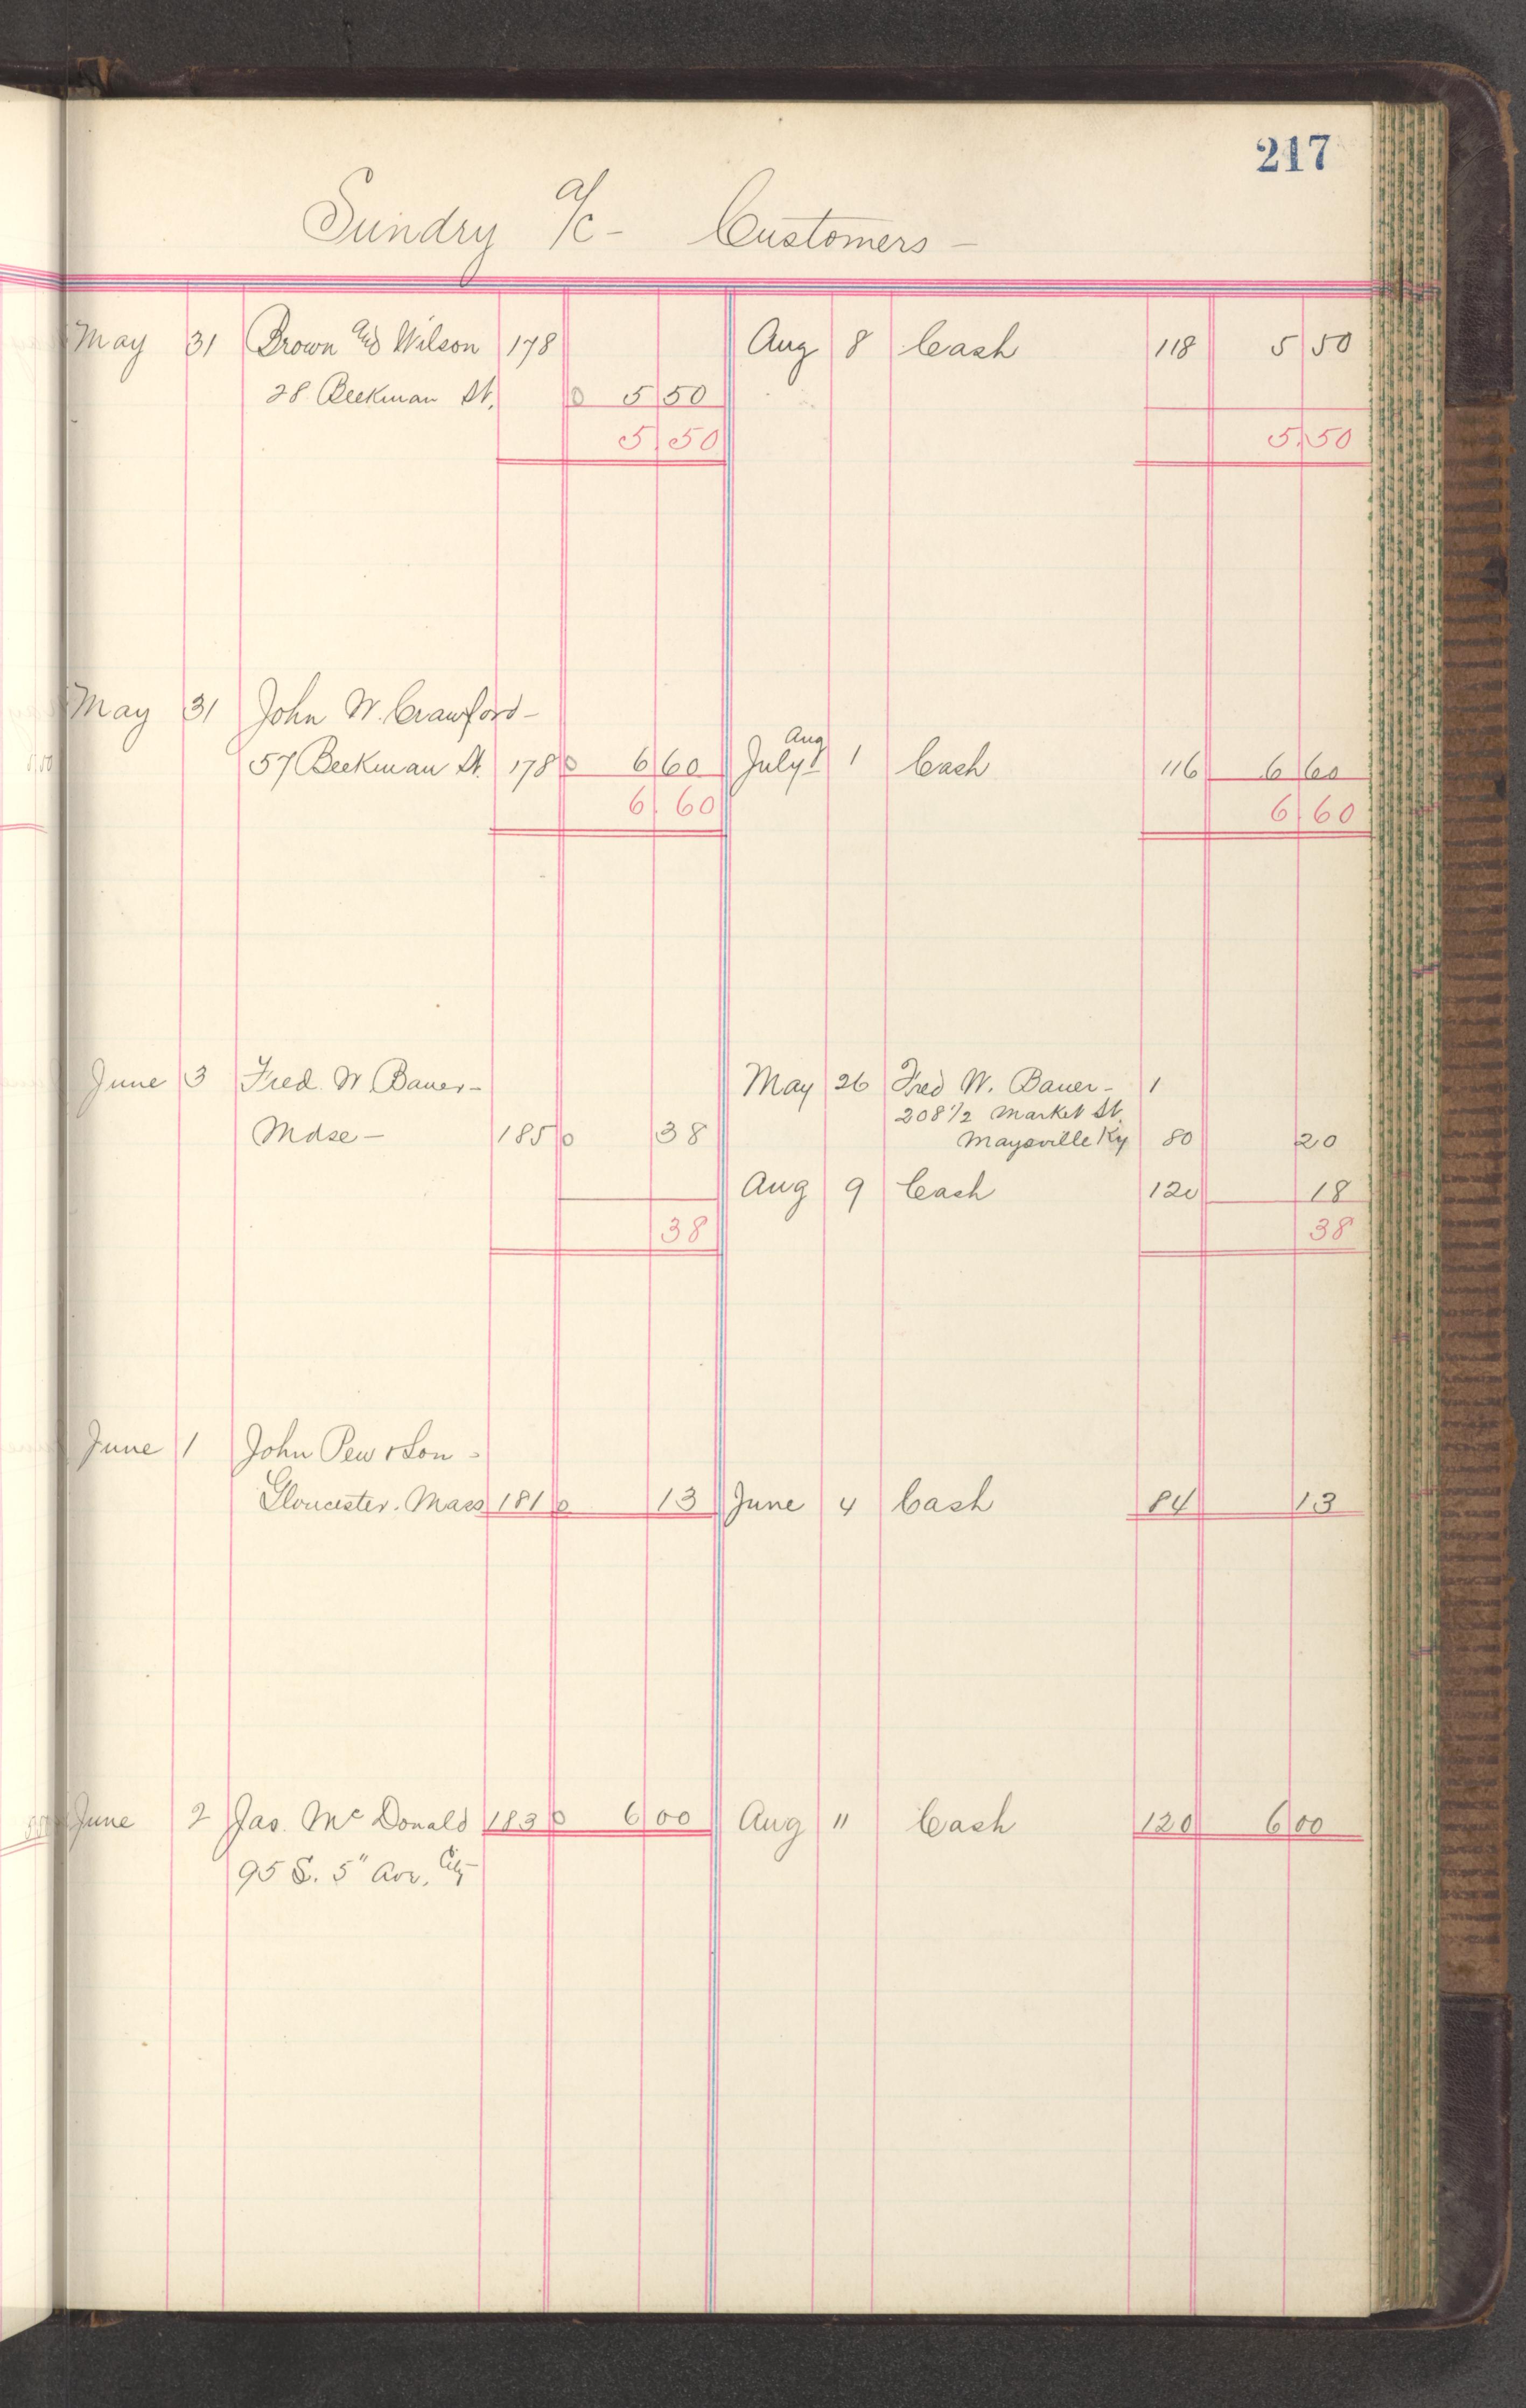 217
Sundry a/c - Customers -
May 31 Brown and Wilson 178 Aug 8 Cash 118 5 50
28 Beekman St. 0 5 50
5.50 5.50
May 31 John W. Crawford -
Aug
57 Beekman St. 178 0 6 60 July 1 Cash 116 6 60
6.60 6.60
June 3 Fred. W Bauer - May 26 Fred W. Bauer - 1
208 1/2 Market St.
Mdse - 185 0 38 Maysville Ky 80 20
Aug 9 Cash 120 18
38 38
June 1 John Pew & Son -
Gloucester. Mass 181 0 13 June 4 Cash 84 13
June 2 Jas. Mc Donald 183 0 6 00 Aug " Cash 120 6 00
95 S. 5" Ave. City